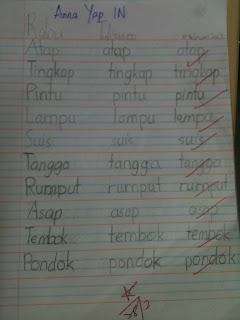 Anna Yap 1N
Atap atap atap
Tingkap tingkap tingkap
Pintu pintu pintu
Lampu lampu lampa
Suis suis suis
Tangga tangga tangga
Rumput rumput rumput
Asap asap asap
Tembok tembok tembok
Pondok pondok pondok